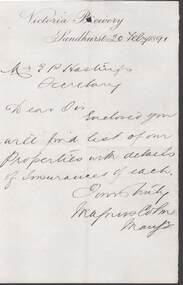 Victoria Brewery
Sandhurst 20 Feby 1891
Mr E P Hastings
Secretary
Dear Sir
Enclosed you
will find list of our
Properties with details
of Insurances of each.
Yours truly